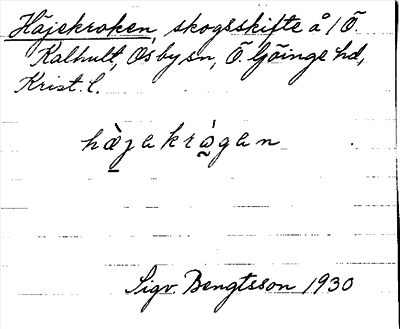 Häjekroken, skogsskifte å 1 Ö.
Kalhult, Osby sn, Ö. Göinge hd,
Krist. l.
hæ̀jakrågan
Sigv. Bengtsson 1930